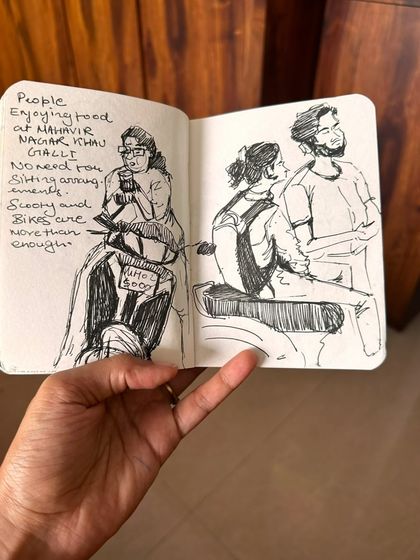 People
Enjoying food
at MAHAVIR
NAGAR KHAU
GALLI
No need for
Sitting arrang-
ements.
Scooty and
Bikes are
more than
enough.
MH02
5009